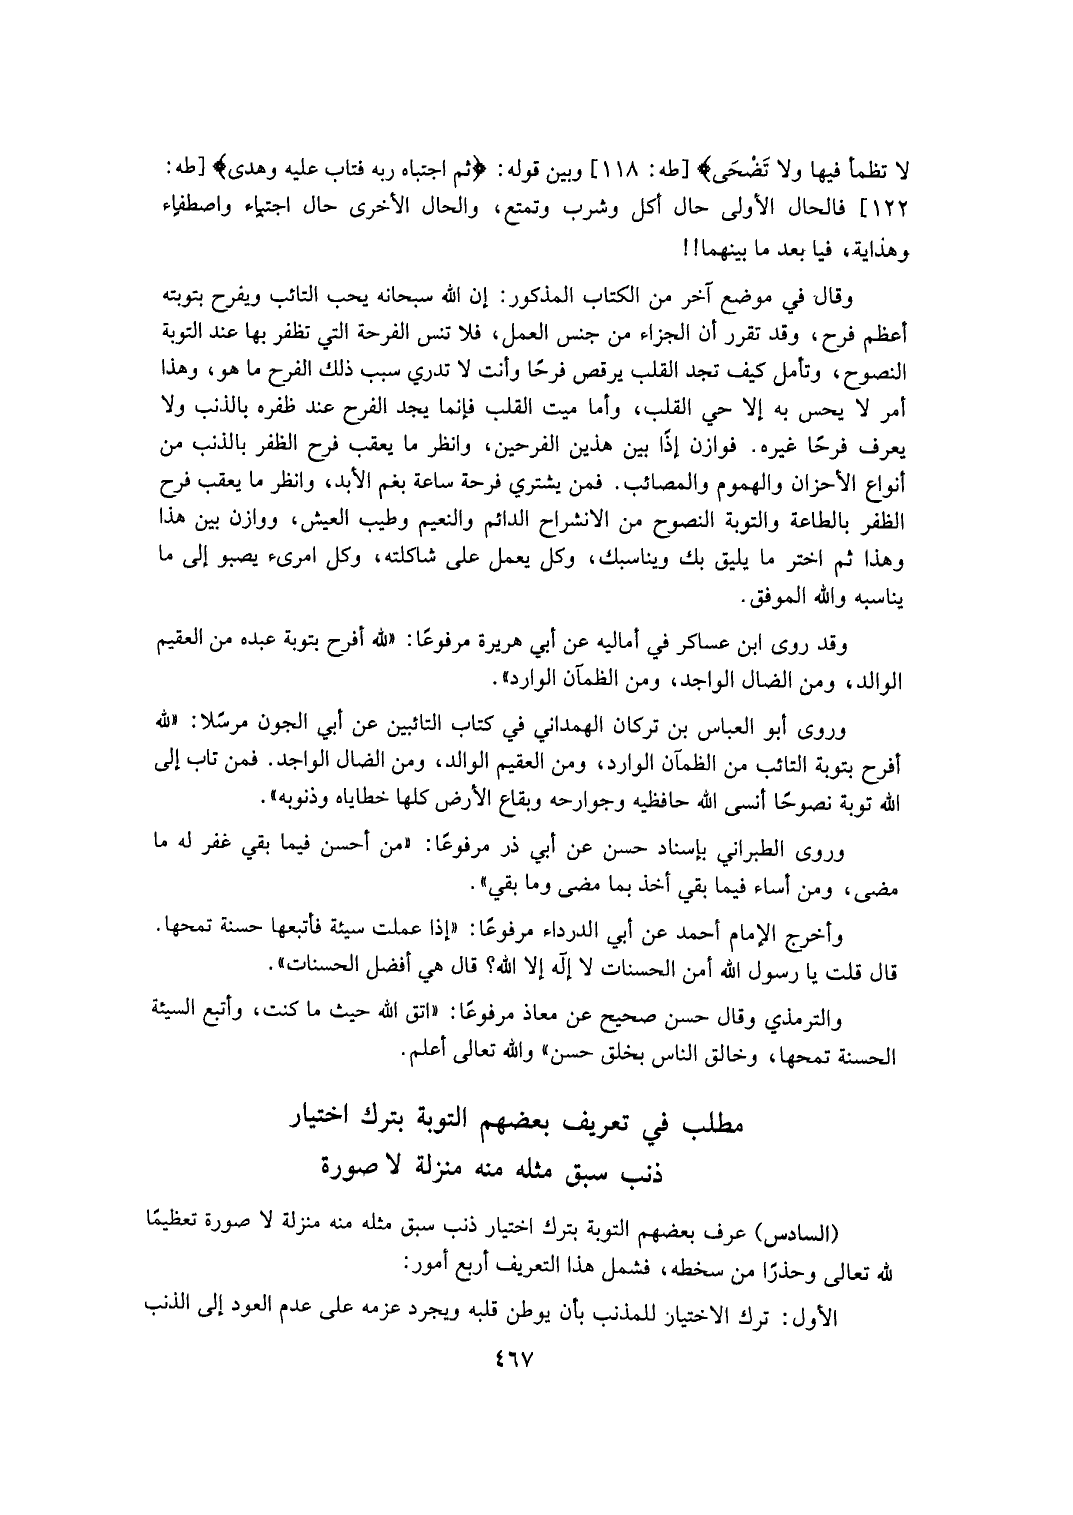 لا تظمأ فيها ولا تَضْحَى﴾ [طه: ١١٨] وبين قوله: ﴿ثم اجتباه ربه فتاب عليه وهدى﴾ [طه:
١٢٢] فالحال الأولى حال أكل وشرب وتمتع، والحال الأخرى حال اجتباء واصطفاء
وهذاية، فيا بعد ما بينهما!!
وقال في موضع آخر من الكتاب المذكور: إن الله سبحانه يحب التائب ويفرح بتوبته
أعظم فرح، وقد تقرر أن الجزاء من جنس العمل، فلا تنس الفرحة التي تظفر بها عند التوبة
النصوح، وتأمل كيف تجد القلب يرقص فرحًا وأنت لا تدري سبب ذلك الفرح ما هو، وهذا
أمر لا يحس به إلا حي القلب، وأما ميت القلب فإنما يجد الفرح عند ظفره بالذنب ولا
يعرف فرحًا غيره. فوازن إذًا بين هذين الفرحين، وانظر ما يعقب فرح الظفر بالذنب من
أنواع الأحزان والهموم والمصائب. فمن يشتري فرحة ساعة بغم الأبد، وانظر ما يعقب فرح
الظفر بالطاعة والتوبة النصوح من الانشراح الدائم والنعيم وطيب العيش، ووازن بين هذا
وهذا ثم اختر ما يليق بك ويناسبك، وكل يعمل على شاكلته، وكل امرىء يصبو إلى ما
يناسبه والله الموفق.
وقد روى ابن عساكر في أماليه عن أبي هريرة مرفوعًا: «لله أفرح بتوبة عبده من العقيم
الوالد، ومن الضال الواجد، ومن الظمآن الوارد».
وروى أبو العباس بن تركان الهمداني في كتاب التائبين عن أبي الجون مرسًلا: «لله
أفرح بتوبة التائب من الظمآن الوارد، ومن العقيم الوالد، ومن الضال الواجد. فمن تاب إلى
الله توبة نصوحًا أنسى الله حافظيه وجوارحه وبقاع الأرض كلها خطاياه وذنوبه».
وروى الطبراني بإسناد حسن عن أبي ذر مرفوعًا: «من أحسن فيما بقي غفر له ما
مضى، ومن أساء فيما بقي أخذ بما مضى وما بقي».
وأخرج الإمام أحمد عن أبي الدرداء مرفوعًا: «إذا عملت سيئة فأتبعها حسنة تمحها.
قال قلت يا رسول الله أمن الحسنات لا إلٓه إلا الله؟ قال هي أفضل الحسنات».
والترمذي وقال حسن صحيح عن معاذ مرفوعًا: «اتق الله حيث ما كنت، وأتبع السيئة
الحسنة تمحها، وخالق الناس بخلق حسن» والله تعالى أعلم.
مطلب في تعريف بعضهم التوبة بترك اختيار
ذنب سبق مثله منه منزلة لا صورة
(السادس) عرف بعضهم التوبة بترك اختيار ذنب سبق مثله منه منزلة لا صورة تعظيمًا
لله تعالى وحذرًا من سخطه، فشمل هذا التعريف أربع أمور:
الأول: ترك الاختيار للمذنب بأن يوطن قلبه ويجرد عزمه على عدم العود إلى الذنب
٤٦٧